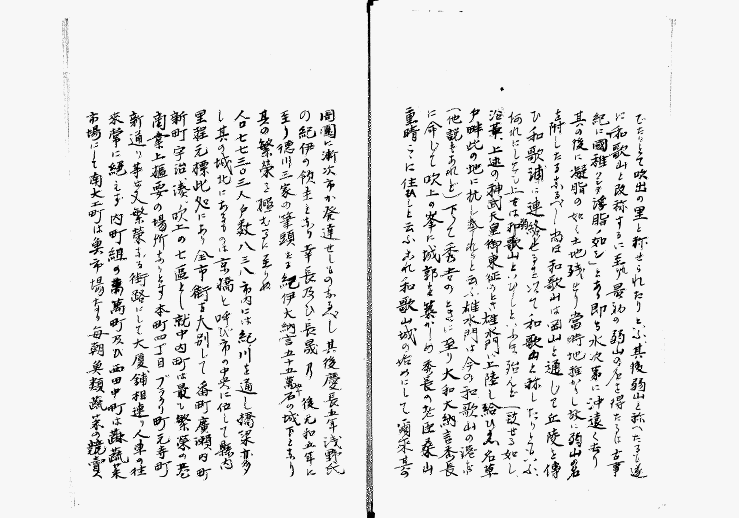 でたりとて吹出の里と称せられたりと云ふ其後弱山と称へたるも遂
に和歌山と改称するに至り最初の弱山の名を得たるは古事
紀に國稚く浮脂の如シとある即ち水次第に沖遠くなり
其の後に凝脂の如く土地残せり當時地稚かし故に弱山の名
を附したるなるべし尚ほ和歌山は岡山と通じて丘陵と傳
ひ和歌浦に連絡し次て和歌山と称したりともいふ
何れにしても上古は和歌山といひしと云ふは殆んど一致せる如し
沿革上述の神武天皇御東征のとき雄水門に上陸し給ひ名草
戸畔此の地に抗し奉れりと云ふ雄水門は今の和歌山の湊な
(他説もあれど)下って秀吉のときに至り大和大納言秀長
に命じて吹上の峯に城郭を築かしめ秀長の老臣桑山
重晴ここに住ひしと云ふこれ和歌山城の始めにして爾来其の
周圍に漸次市か発達せしものなるべし其後慶長五年浅野氏
の紀伊の領主となり幸長及ひ長晟乃 後元和五年に
至り徳川三家の筆頭たる紀伊大納言五十五萬石の城下となり
其の繁榮を極むるに至りぬ
人口七七三〇三人戸数八三八市内には紀川を通し橋梁亦多
し其の城北にあるものは京橋と呼び市の中央に位して縣内
里程元標此処にあり全市街を大別して番町廣瀬内町
新町宇治湊吹上の七區とし就中内町は最も繁榮の巷
商業上樞要の場所なりとす本町四丁目ブラクリ町元寺町
新通り等も又繁榮なる街路にして大廈舗相連り人車の往
来常に絶えず内町組の萬町及び西田中町は蔬菜
市場にして南大工町は魚市場たり毎朝魚類蔬菜の競賣